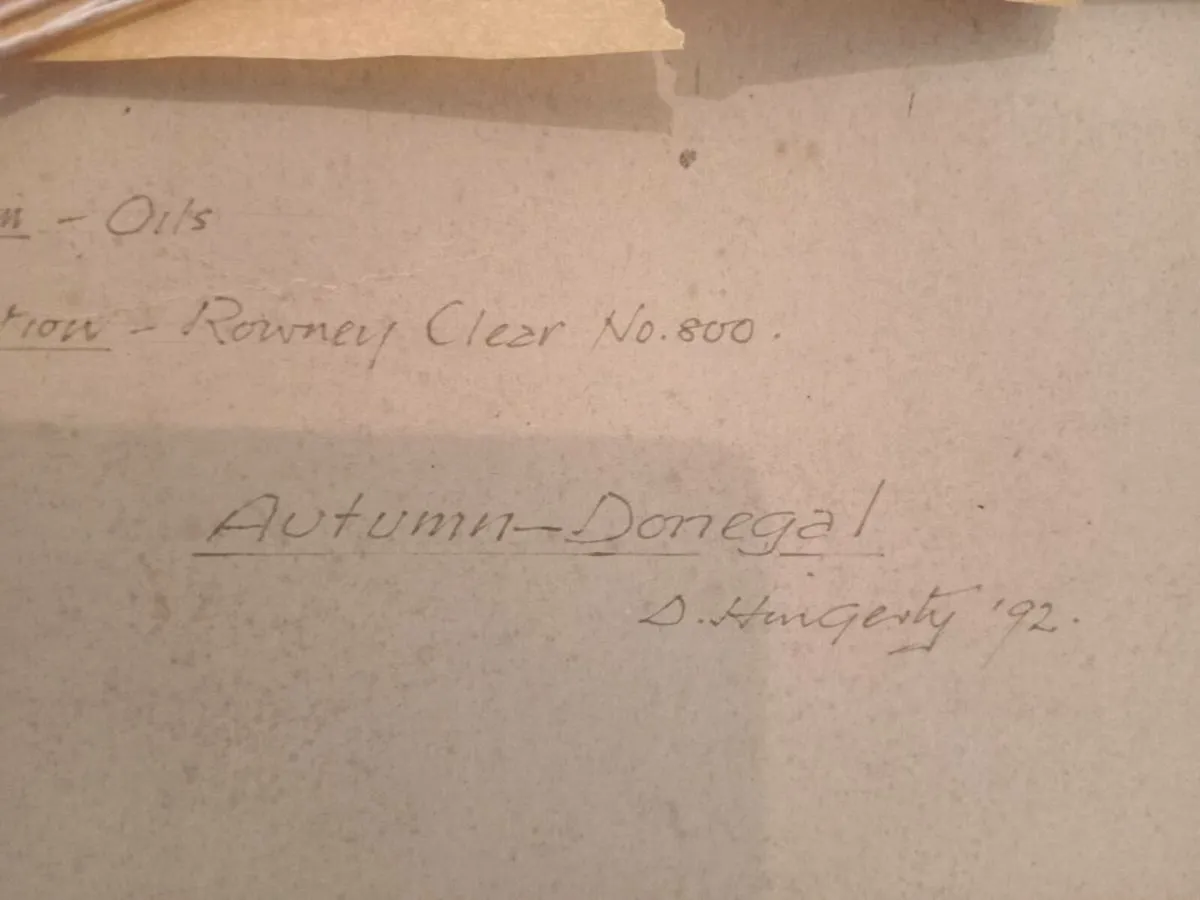 m - Oils
tion - Rowney Clear No. 800.
Autumn - Donegal
D. Hingerty '92.